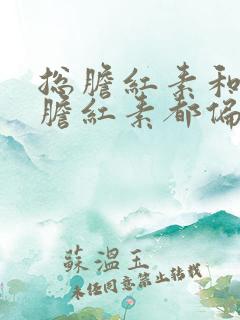 总膽紅素和
膽紅素都偏
蘇溫玉
未经同意禁止转载